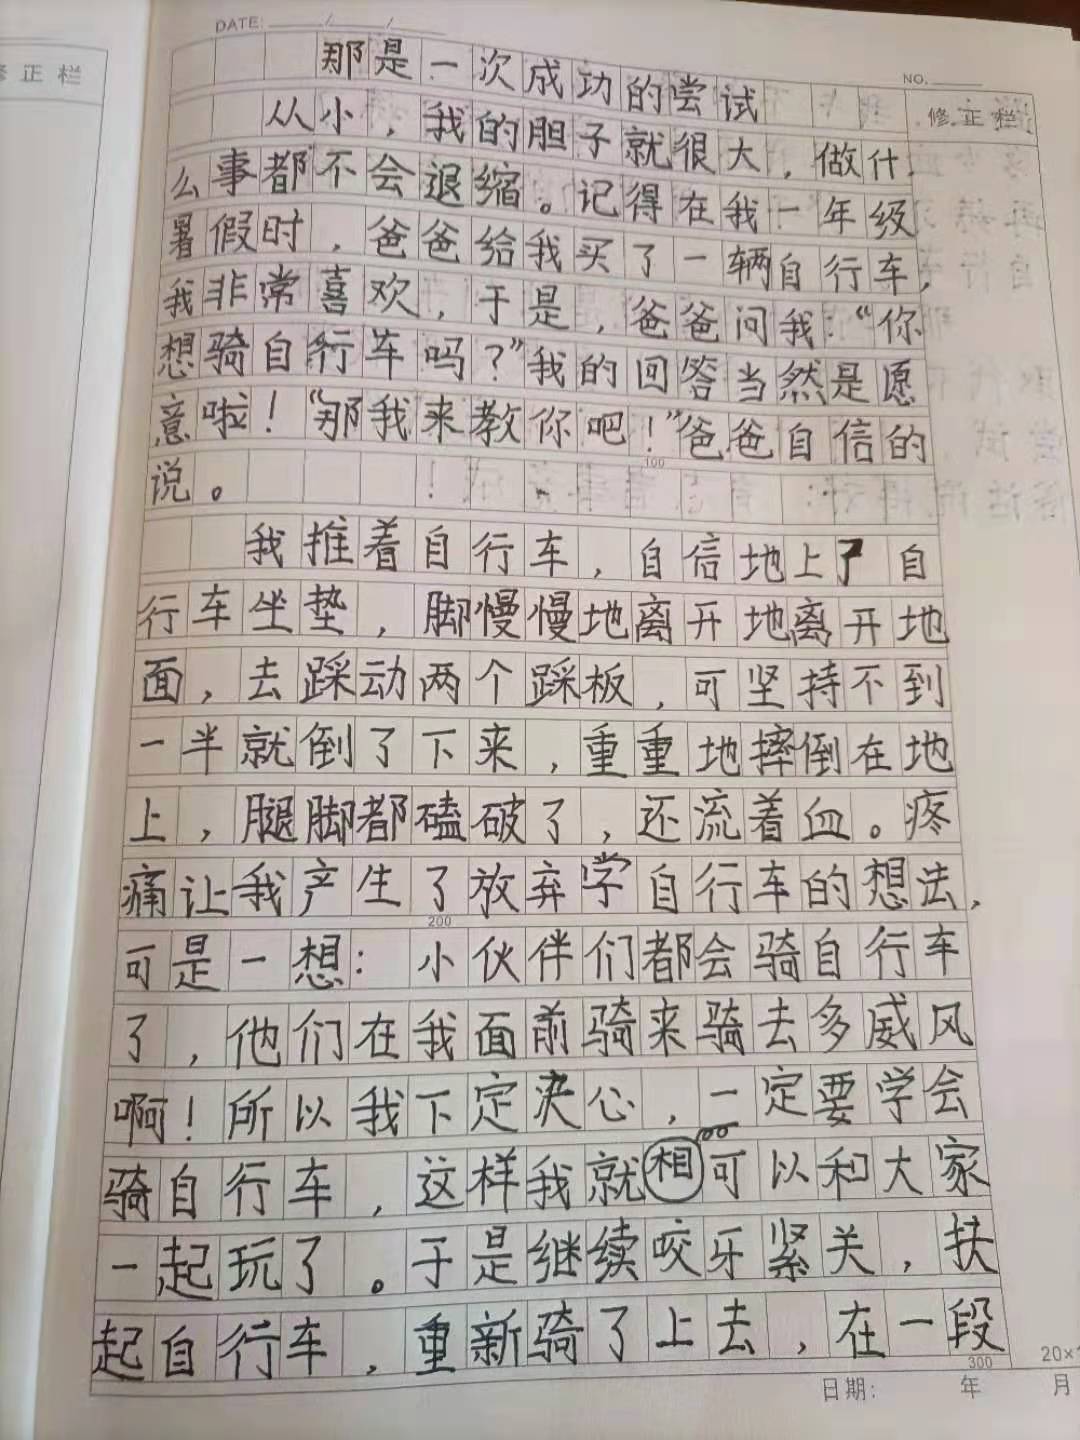 DATE: / /
NO.
修正栏
修正栏
那是一次成功的尝试
从小，我的胆子就很大，做什
么事都不会退缩。记得在我一年级
暑假时，爸爸给我买了一辆自行车，
我非常喜欢，于是，爸爸问我：“你
想骑自行车吗？”我的回答当然是愿
意啦！“那我来教你吧！”爸爸自信的
100
说。
我推着自行车，自信地上了自
行车坐垫，脚慢慢地离开地离开地
面，去踩动两个踩板，可坚持不到
一半就倒了下来，重重地摔倒在地
上，腿脚都磕破了，还流着血。疼
痛让我产生了放弃学自行车的想法，
200
可是一想：小伙伴们都会骑自行车
了，他们在我面前骑来骑去多威风
啊！所以我下定决心，一定要学会
骑自行车，这样我就相可以和大家
一起玩了。于是继续咬牙紧关，扶
起自行车，重新骑了上去，在一段
300
日期： 年 月